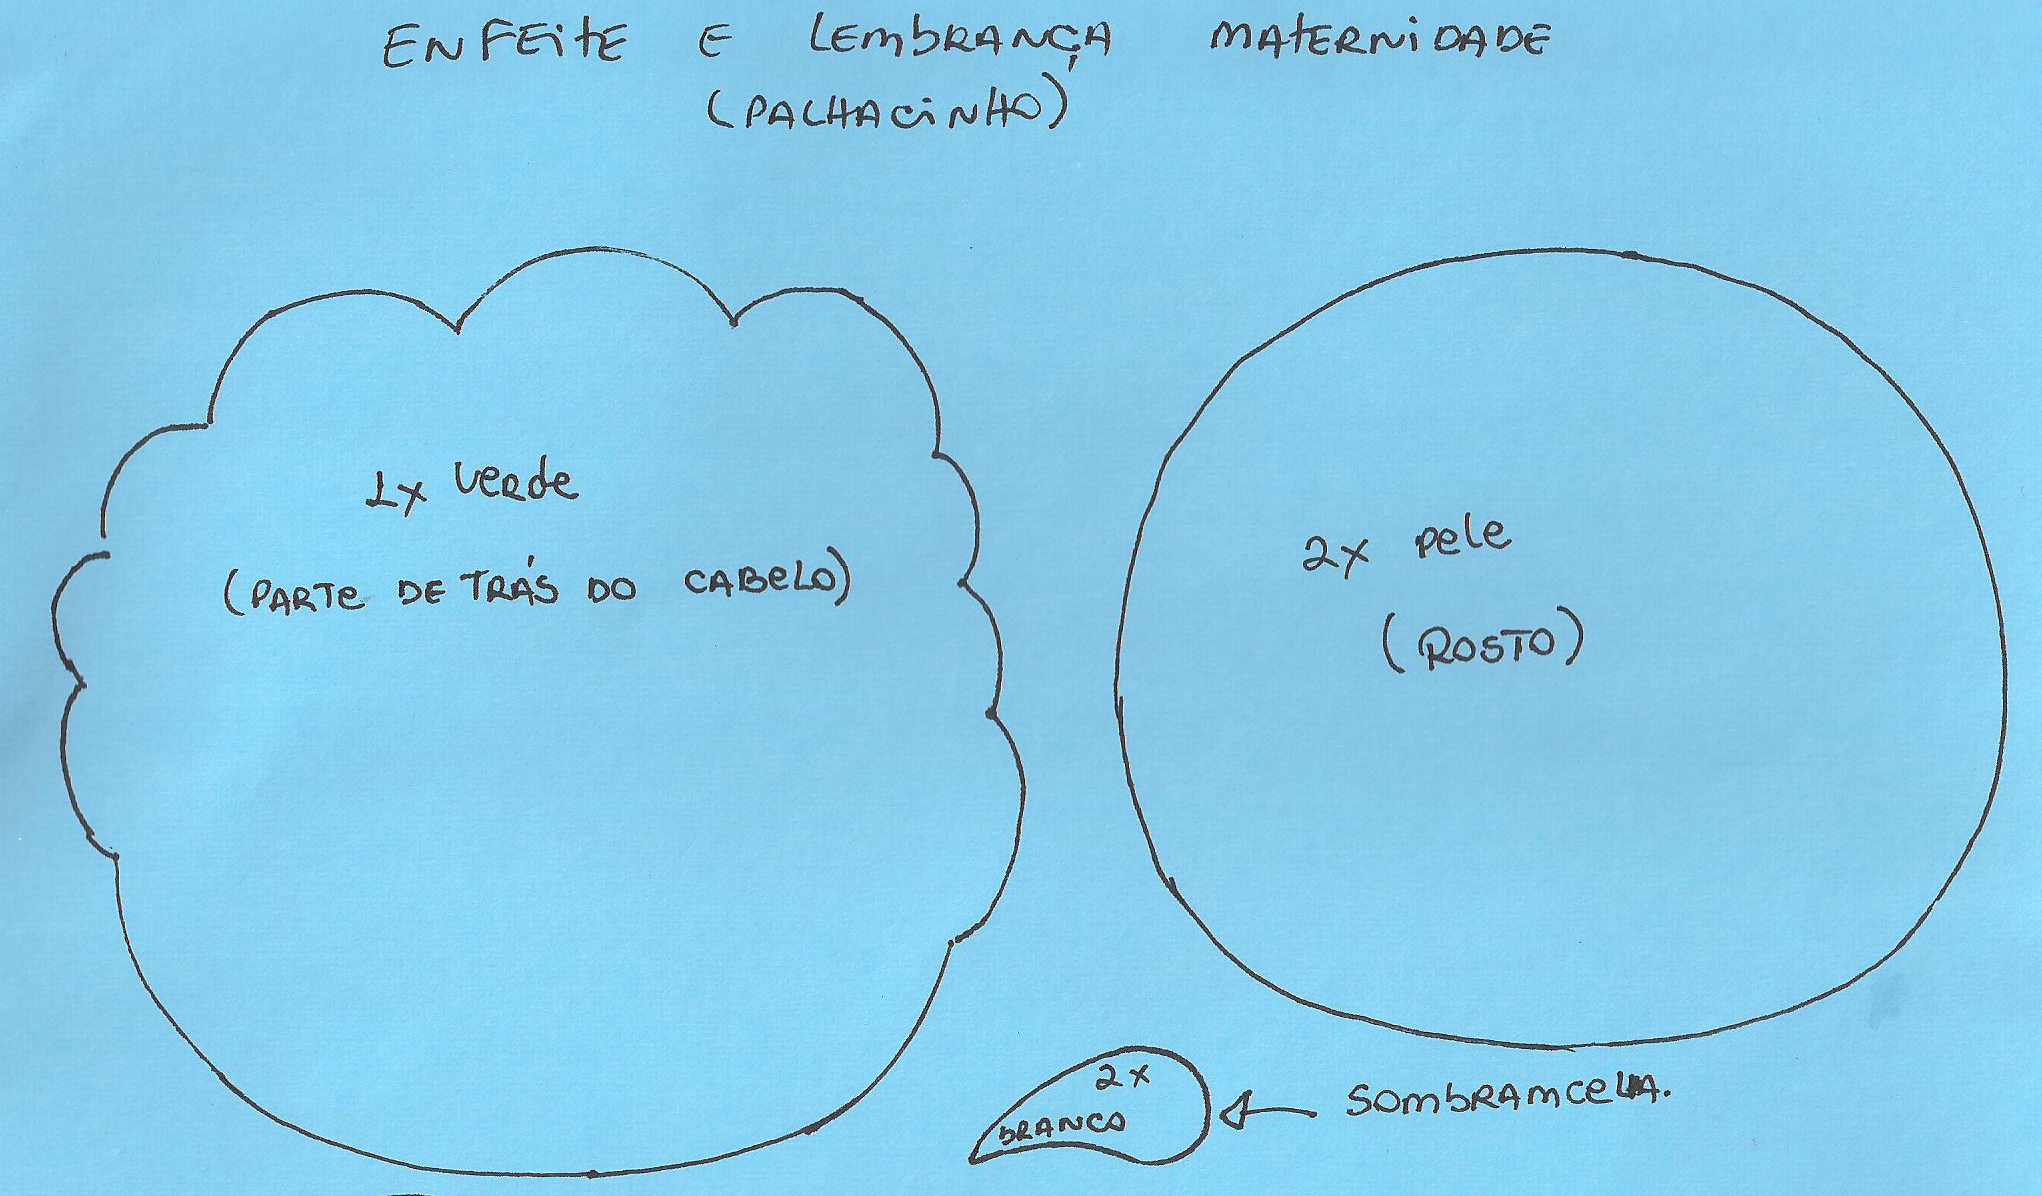 ENFEITE E LEMBRANÇA MATERNIDADE
(PALHACINHO)
1x verde
(PARTE DE TRÁS DO CABELO)
2x pele
(ROSTO)
2x
BRANCO
SOMBRAMCELHA.